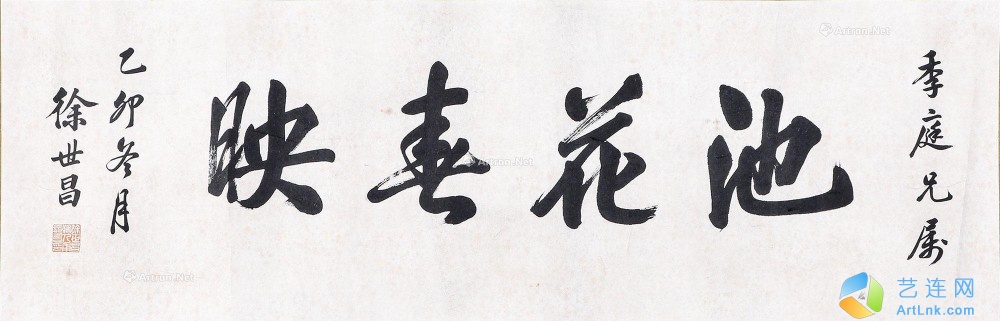 季庭兄属
池花春映
乙卯冬月
徐世昌
Artron.Net
Artron.Net
Artron.Net
艺连网
ArtLnk.com